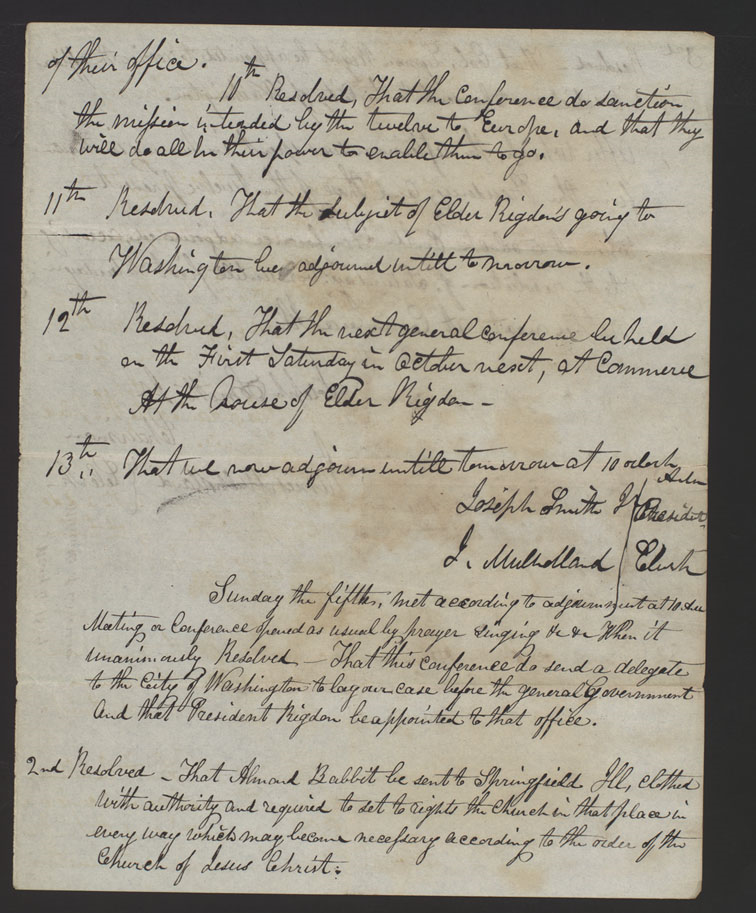 of their office.
10th Resolved, That the conference do sanction
the mission intended by the twelve to Europe, and that they
will do all in their power to enable them to go.
11th Resolved, That the subject of Elder Rigdon's going to
Washington be adjourned untill tomorrow.
12th Resolved, That the next general conference be held
on the First Saturday in October next, at Commerce
At the house of Elder Rigdon -
13th,, That we now adjourn untill tomorrow at 10 oclock
A.M
Joseph Smith Jr President
J. Mulholland Clerk
Sunday the fifth, met according to adjournment at 10 A.M
Meeting or Conference opened as usual by prayer singing &c &c When it
unanimously Resolved - That this conference do send a delegate
to the City of Washington to lay our case before the general Government
And that President Rigdon be appointed to that office.
2nd Resolved - That Almond Babbit be sent to Springfield Ill, clothed
with authority and required to set to rights the church in that place in
every way which may become necessary according to the order of the
Church of Jesus Christ: